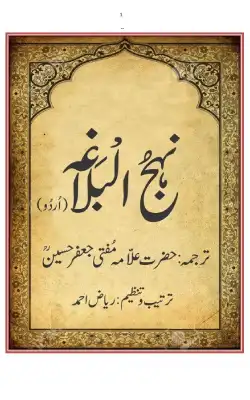 1
نہج البلاغہ
(اُردُو)
ترجمہ: حضرت علّامہ مُفتی جعفر حسینؒ
ترتیب و تنظیم: ریاض احمد